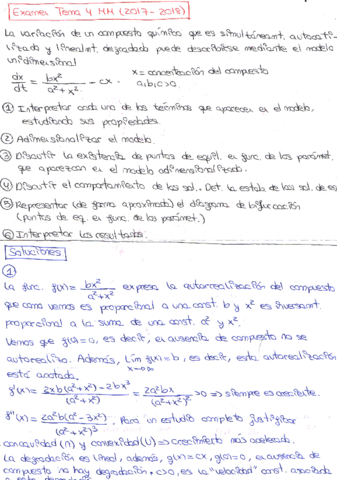 Examen Tema 4 MM (2017-2018)
La variación de un compuesto químico que es simultáneamt. autocata-
lizado y linealmt. degradado puede describirse mediante el modelo
unidimensional
dx/dt = bx²/(a²+x²) - cx. x = concentración del compuesto
a,b,c>0.
① Interpretar cada uno de los términos que aparecen en el modelo,
estudiando sus propiedades.
② Adimensionalizar el modelo.
③ Discutir la existencia de puntos de equil. en func. de los parámet.
que aparezcan en el modelo adimensionalizado.
④ Discutir el comportamiento de las sol.. Det. la estab. de las sol. de es
⑤ Representar (de forma aproximada) el diagrama de bifurcación
(puntos de eq. en func. de los parámet.)
⑥ Interpretar los resultados.
Soluciones
①
La func. f(x) = bx²/(a²+x²) expresa la autocatalización del compuesto
que como vemos es proporcional a una const. b y x² es inversamt.
proporcional a la suma de una const. a² y x².
Vemos que f(0)=0, es decir, en ausencia de compuesto no se
autocataliza. Además, lim f(x) = b, es decir, esta autocatalización
x→∞
está acotada.
f'(x) = (2xb(a²+x²) - 2bx³)/(a²+x²)² = 2a²bx/(a²+x²)² >0 => siempre es creciente.
f''(x) = 2a²b(a²-3x²)/(a²+x²)³. Para un estudio completo justificar
concavidad (∩) y convexidad (∪) => crecimiento más acelerado.
La degradación es lineal, además, g(x)=cx, g(0)=0, en ausencia de
compuesto no hay degradación, c>0, es la "velocidad" const. asociada